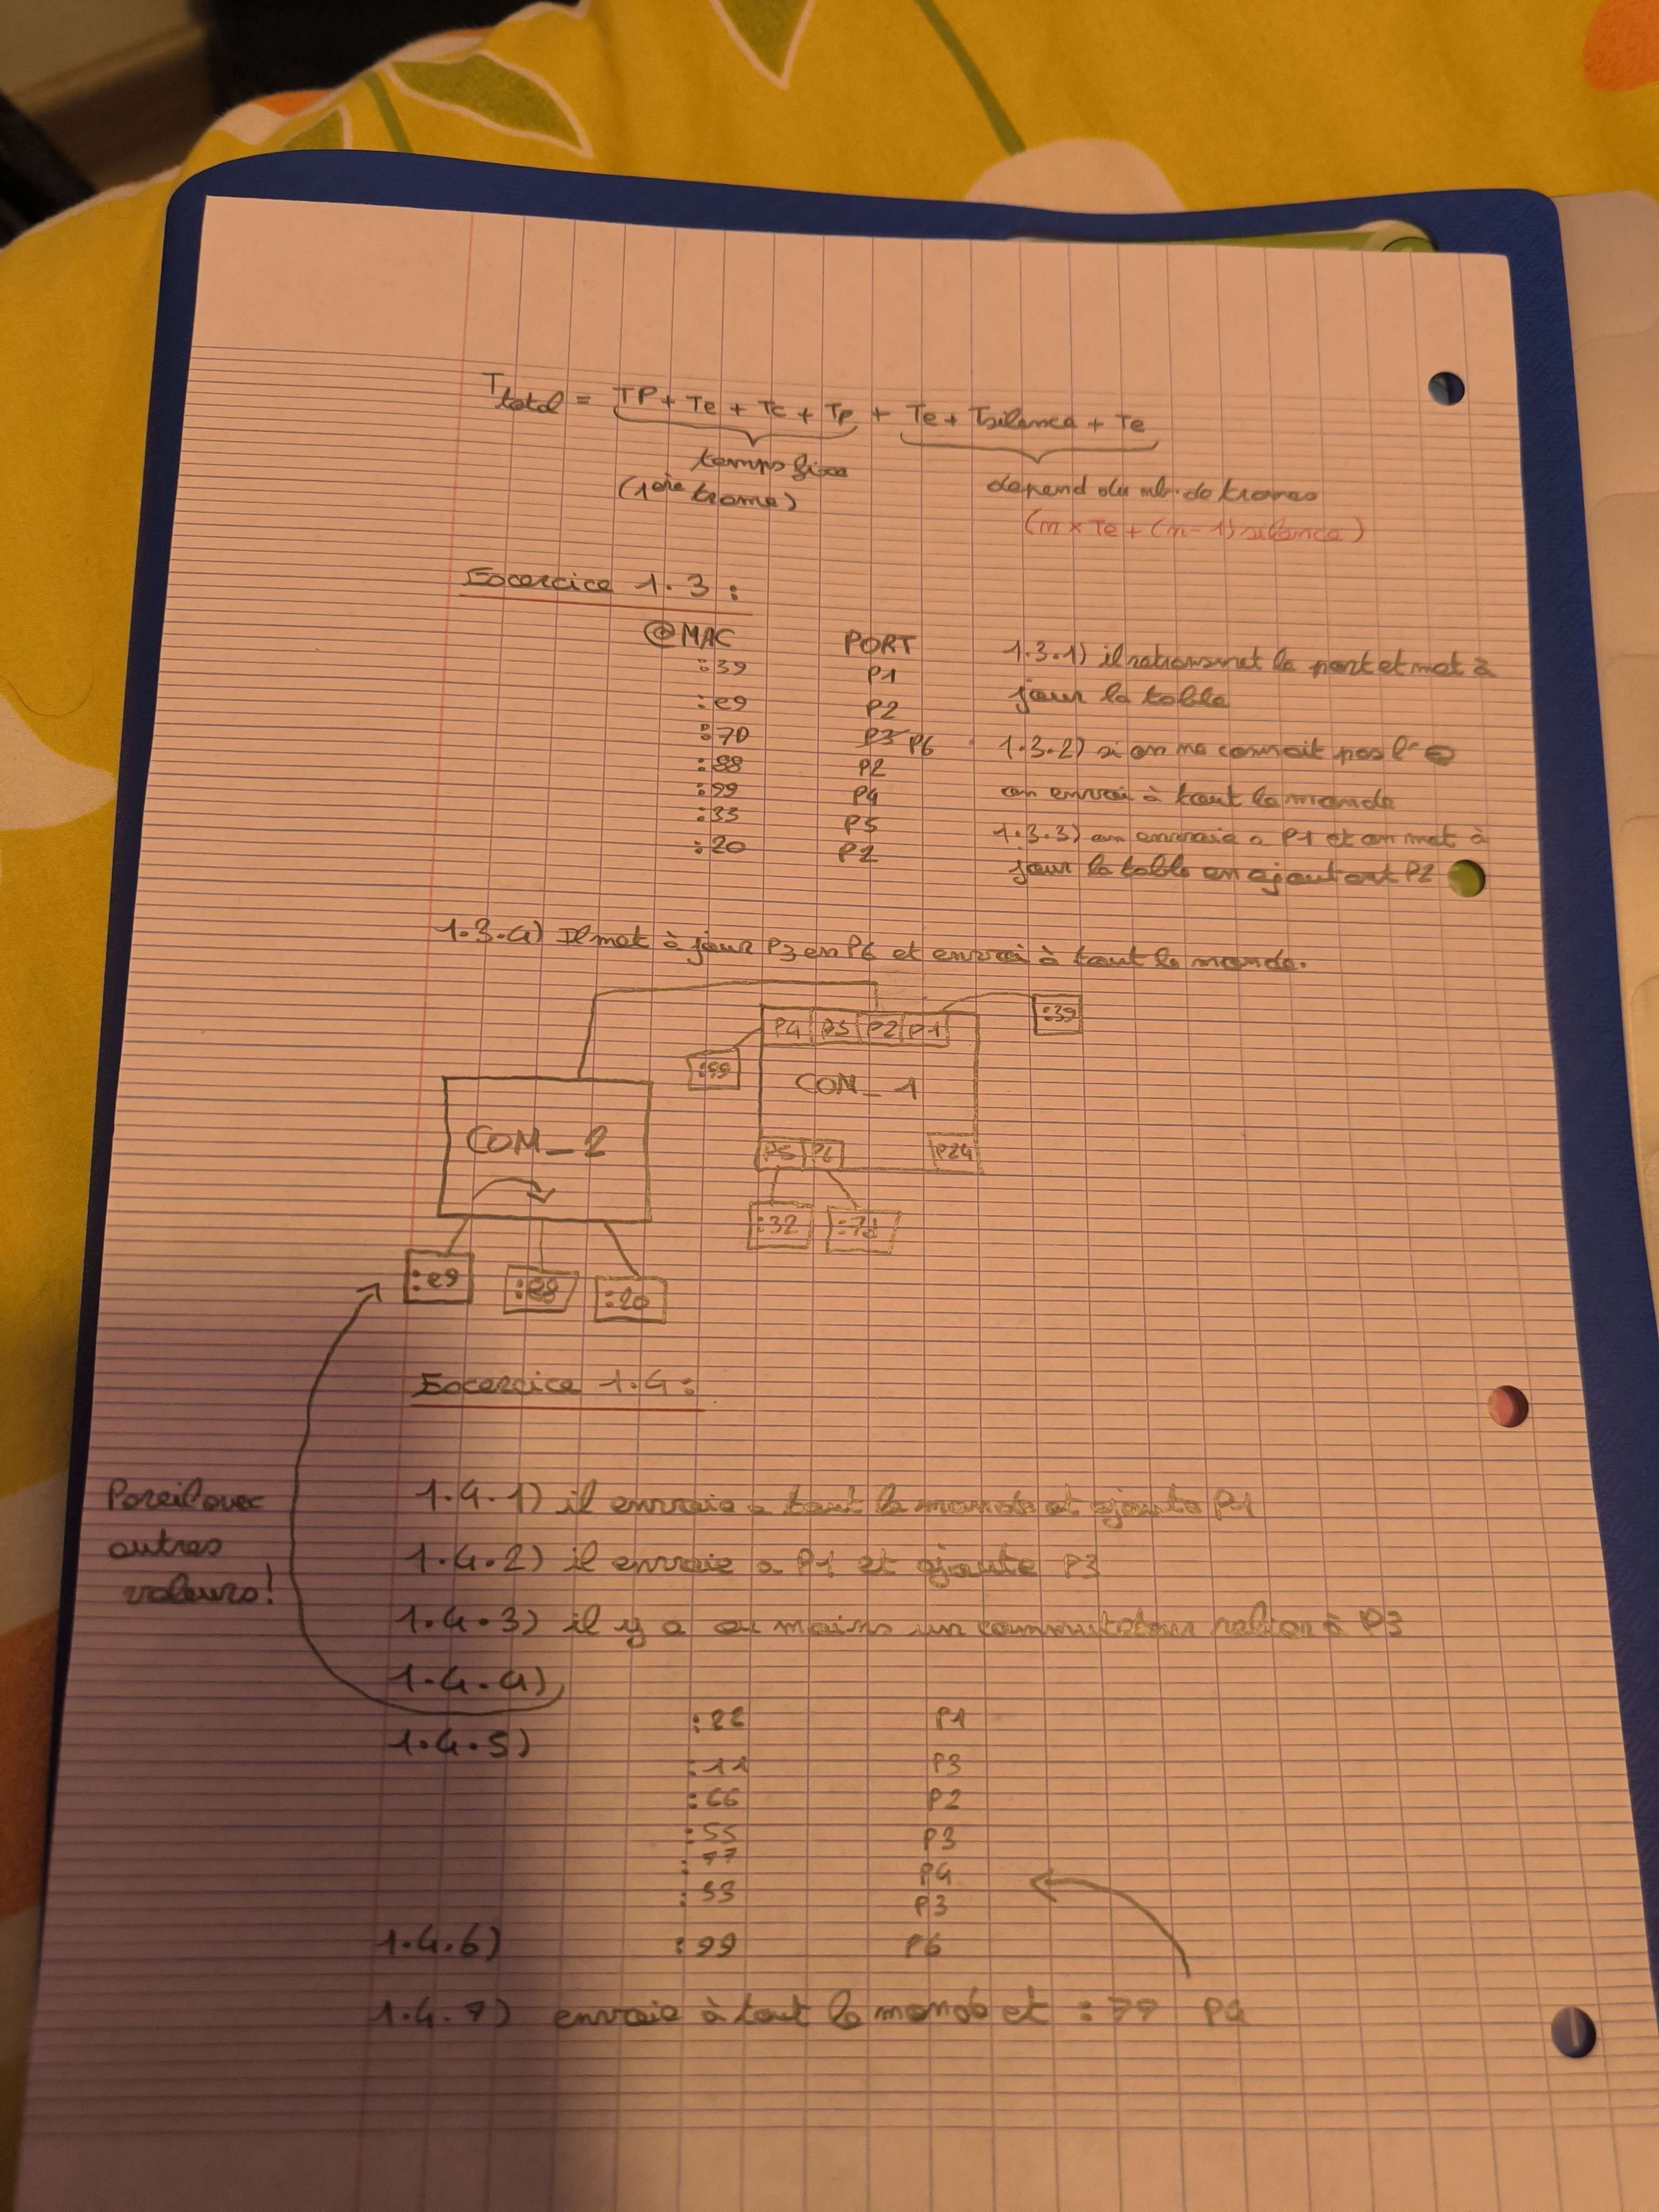 Ttotal = TP + Te + Tc + Tp + Te + Tsilence + Te
temps fixe
(1ère trame)
depend du nb. de trames
(n x Te + (n-1) silence)
Exercice 1.3 :
@MAC PORT
:39 P1
:e9 P2
:70 P3 P6
:88 P2
:99 P4
:33 P5
:20 P2
1.3.1) il retransmet le port et met à
jour la table
1.3.2) si on ne connait pas l'@
on envoi à tout le monde
1.3.3) on envoie a P1 et on met à
jour la table en ajoutant P2
1.3.4) Il met à jour P3 en P6 et envoi à tout le monde.
P4 P3 P2 P1
:39
:99
COM_1
COM_2
P5 P6 P24
:32
:e9 :88 :20
Exercice 1.4 :
Pareil avec
autres
valeurs!
1.4.1) il envoie a tout le monde et ajoute P1
1.4.2) il envoie a P1 et ajoute P3
1.4.3) il y a au moins un commutateur relier à P3
1.4.4)
:22 P1
1.4.5)
:11 P3
:66 P2
:55 P3
:77 P4
:33 P3
1.4.6) :99 P6
1.4.7) envoie à tout le monde et :77 P4